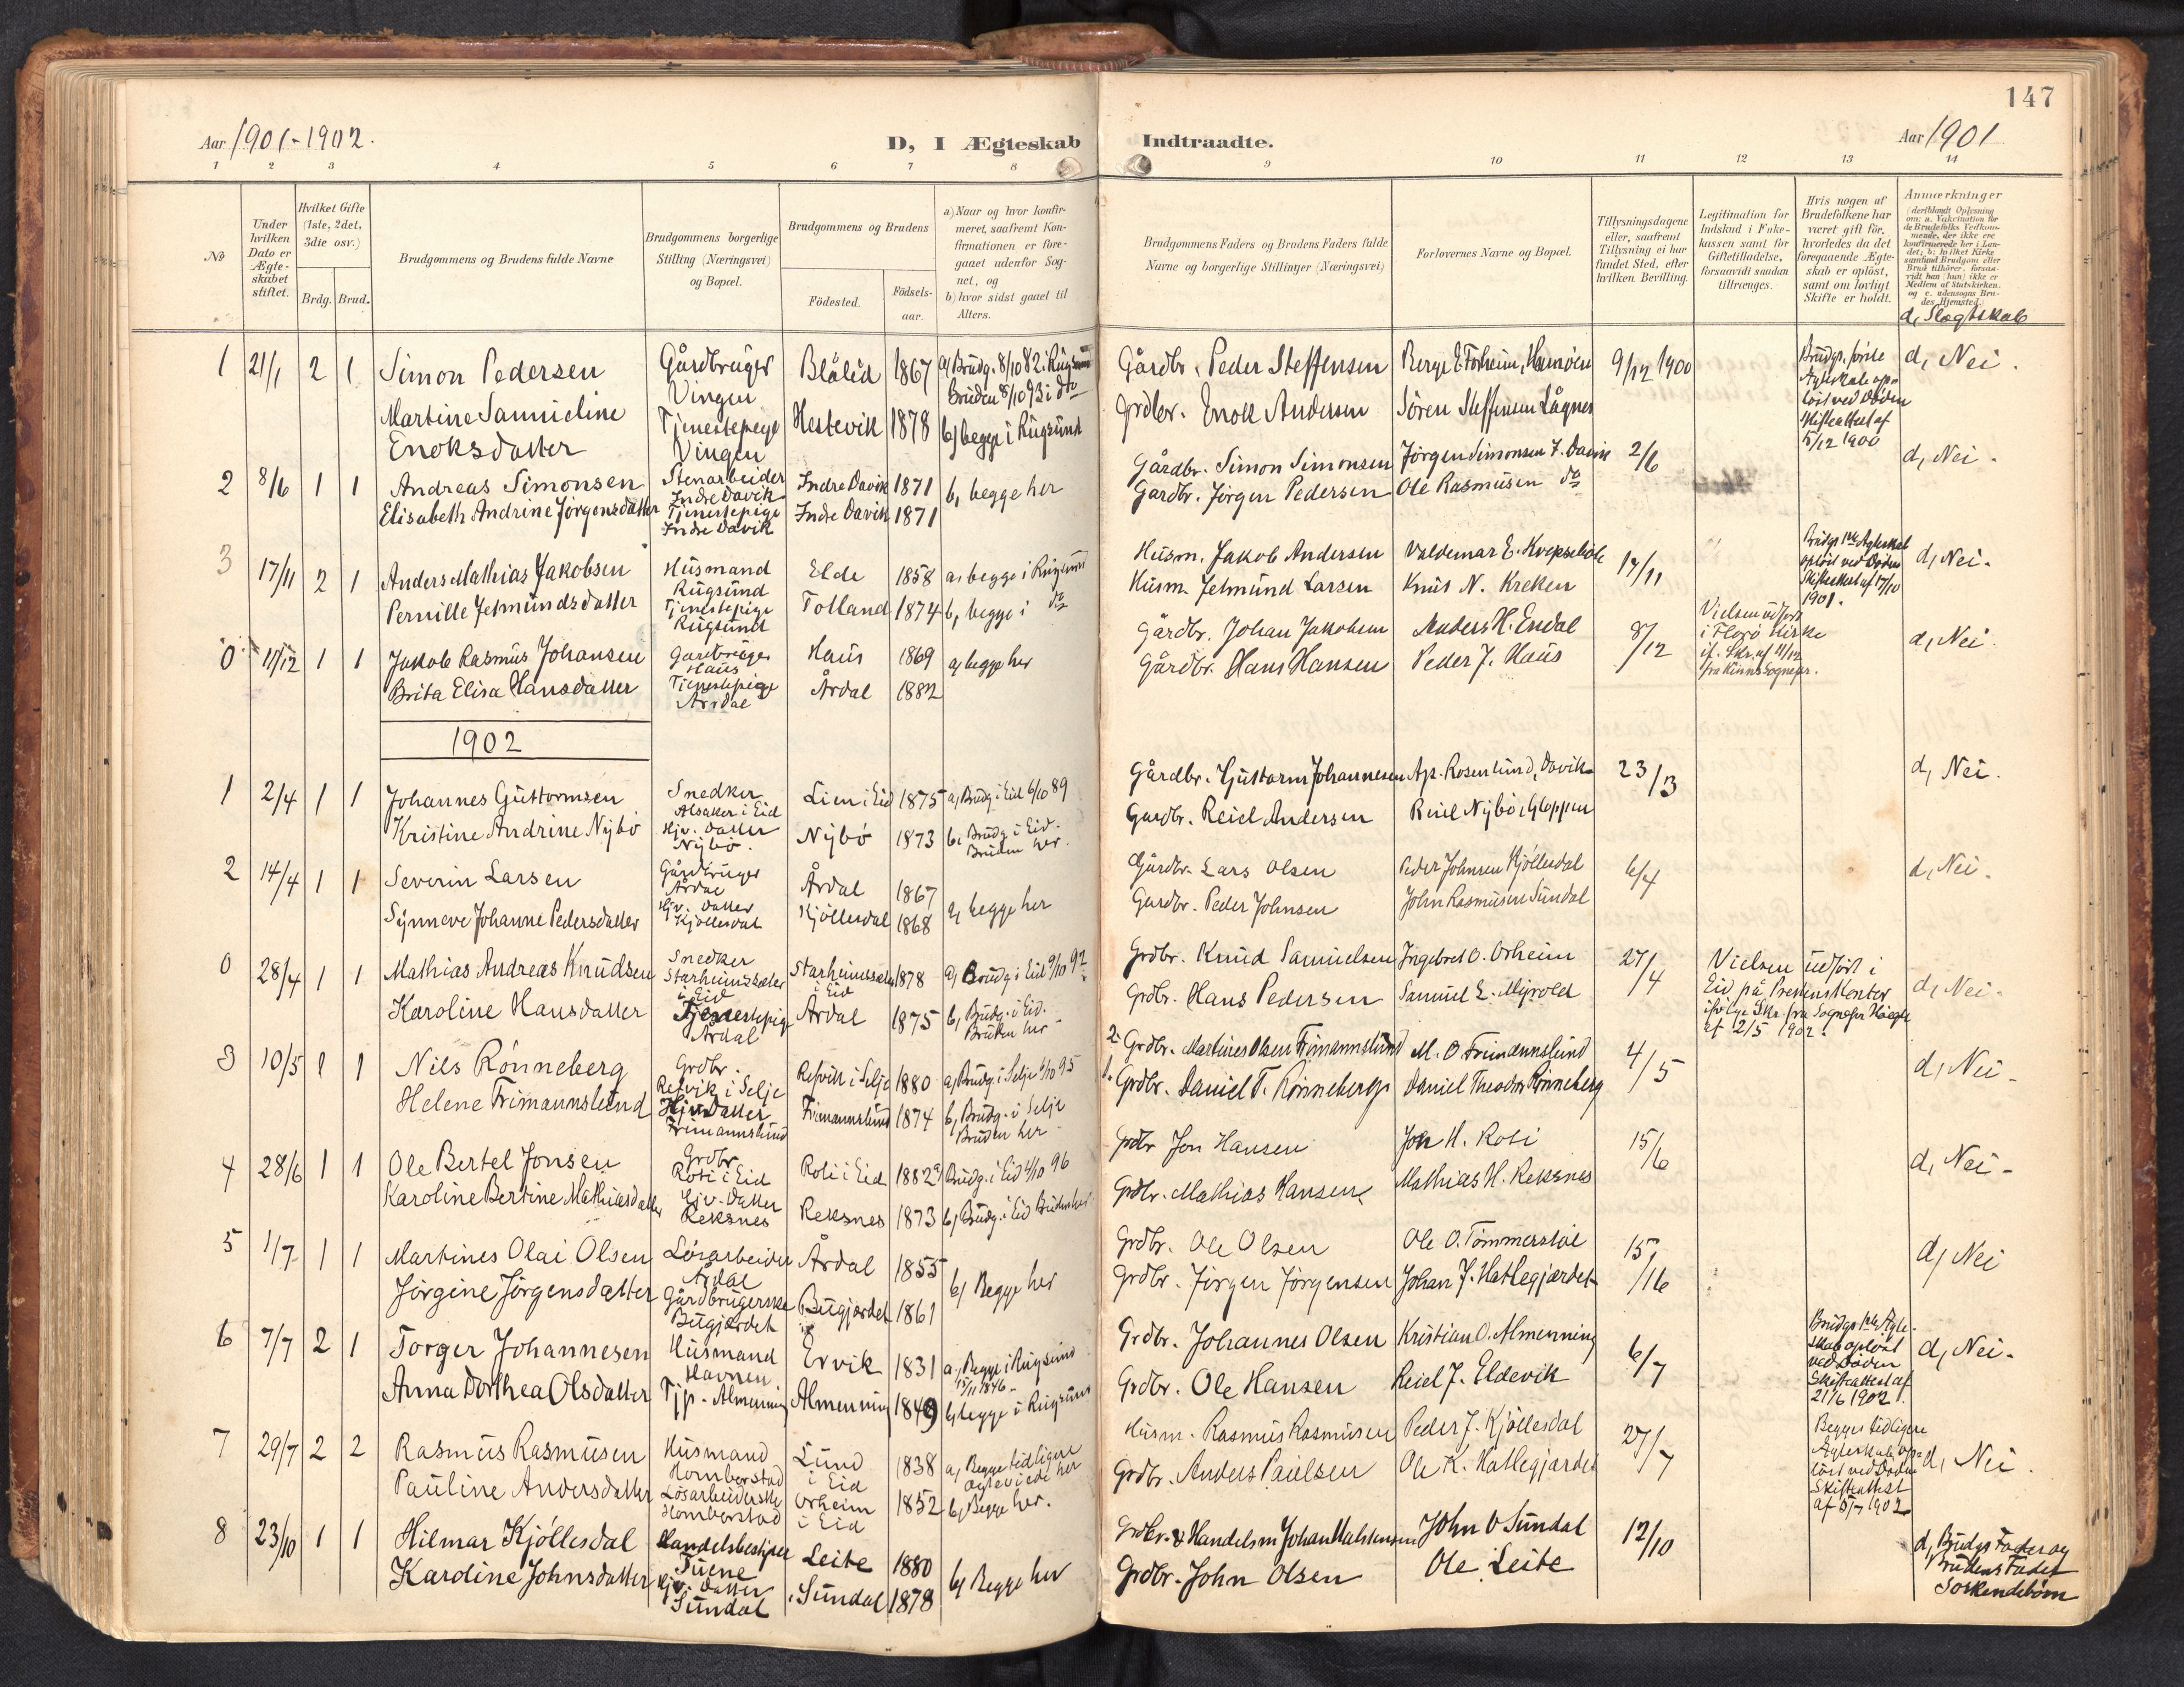 147
Aar 1901-1902.
D, I Ægteskab Indtraadte.
Aar 1901
1 2 3 4 5 6 7 8 9 10 11 12 13 14
No
Under hvilken Dato er Ægteskabet stiftet.
Hvilket Gifte (1ste, 2det, 3die osv.)
Brdg. Brud.
Brudgommens og Brudens fulde Navne
Brudgommens borgerlige Stilling (Næringsvei) og Bopæl.
Brudgommens og Brudens
Födested.
Födselsaar.
a) Naar og hvor konfirmeret, saafremt Konfirmationen er foregaaet udenfor Sognet, og
b) hvor sidst gaaet til Alters.
Brudgommens Faders og Brudens Faders fulde Navne og borgerlige Stillinger (Næringsvei)
Forlovernes Navne og Bopæl.
Tillysningsdagene eller, saafremt Tillysning ei har fundet Sted, efter hvilken Bevilling.
Legitimation for Indskud i Enkekassen samt for Giftetilladelse, forsaavidt saadan tiltrænges.
Hvis nogen af Brudefolkene har været gift för, hvorledes da det foregaaende Ægteskab er oplöst, samt om lovligt Skifte er holdt.
Anmærkninger
(deriblandt Oplysning om: a. Vakcination for de Brudefolks Vedkommende, der ikke ere konfirmerede her i Landet; b. hvilket Kirkesamfund Brudgom eller Brud tilhörer, forsaavidt han (hun) ikke er Medlem af Statskirken, og c. udensogns Brudes Hjemsted.)
d, Slægtskab
1 21/1 2 1 Simon Pedersen Gårdbruger Vingen Blålid 1867 a) Brudg. 8/10 82 i Rugsund Gårdbr. Peder Steffensen 9/12 1900 d, Nei.
Martine Samueline Enoksdatter Tjenestepige Vingen Hestevik 1878 Bruden 8/10 93 i do b) begge i Rugsund Grdbr. Enok Andersen Sören Steffensen Lågnes
Brudgs. förste Ægteskab oplöst ved Döden Skifteattest af 5/12 1900
2 8/6 1 1 Andreas Simonsen Stenarbeider Indre Davik Indre Davik 1871 b, begge her Gårdbr. Simon Simonsen Jörgen Simonsen I. Davik 2/6 d, Nei.
Elisabeth Andrine Jörgensdatter Tjenestepige Indre Davik Indre Davik 1871 Gardbr. Jörgen Pedersen Ole Rasmusen do
3 17/11 2 1 Anders Mathias Jakobsen Husmand Rugsund Elde 1858 a, begge i Rugsund Husm. Jakob Andersen 17/11 d, Nei.
Pernille Jetmundsdatter Tjenestepige Rugsund Totland 1874 b, begge i do Husm. Jetmund Larsen Knut N. Kreken
Brudgs 1ste Ægteskab oplöst ved Döden Skifteattest af 17/10 1901.
0 11/12 1 1 Jakob Rasmus Johansen Gardbruger Haus Haus 1869 a, begge her Gårdbr. Johan Jakobsen Anders H. Endal 8/12 d, Nei.
Brita Elisa Hansdatter Tjenestepige Årdal Årdal 1882 Gårdbr. Hans Hansen Peder J. Haus
Vielsen udfört i Florö Kirke if. Skr. af 11/12 fra Kinns Sognepr.
1902
1 2/4 1 1 Johannes Guttormsen Snedker Alsaker i Eid Lien i Eid 1875 a, Brudg. i Eid 6/10 89 Gårdbr. Guttorm Johannesen Ap. Rosenlund, Davik 23/3 d, Nei.
Kristine Andrine Nybö Gjv. Datter Nybö. Nybö 1873 b, Brudg. i Eid. Bruden her. Gardbr. Reiel Andersen Reiel Nybö, Gloppen
2 14/4 1 1 Severin Larsen Gårdbruger Årdal Årdal 1867 b, begge her Gårdbr. Lars Olsen Peder Johnsen Kjöllesdal 6/4 d, Nei.
Synneve Johanne Pedersdatter Gjv. Datter Kjöllesdal Kjöllesdal 1868 Gardbr. Peder Johnsen John Rasmusen Sundal
0 28/4 1 1 Mathias Andreas Knudsen Snedker Starheimssæter i Eid Starheimssæter i Eid 1878 a, Brudg. i Eid 9/10 92 Grdbr. Knud Samuelsen Ingebret O. Orheim 27/4 d, Nei.
Karoline Hansdatter Tjenestepige Årdal Årdal 1875 b, Brudg. i Eid. Bruden her Grdbr. Hans Pedersen Samuel L. Myrold
Vielsen udfört i Eid på Prestens Kontor ifölge Skr. fra Sognepr af 2/5 1902.
3 10/5 1 1 Nils Rönneberg Grdbr. Refvik i Selje Refvik i Selje 1880 a, Brudg. i Selje 6/10 95 2. Grdbr. Martines Olsen Frimannslund M. O. Frimannslund 4/5 d, Nei.
Helene Frimannslund Hjv. Datter Frimannslund Frimannslund 1874 b, Brudg. i Selje Bruden her 1. Grdbr. Daniel T. Rönneberg Daniel Theodor Rönneberg
4 28/6 1 1 Ole Bertel Jonsen Grdbr. Roti i Eid Roti i Eid 1882 a) Brudg. i Eid 4/10 96 Grdbr Jon Hansen Jon H. Roti 15/6 d, Nei.
Karoline Bertine Mathiasdatter Gjv. Datter Reksnes Reksnes 1873 b, Brudg. i Eid Bruden her Grdbr. Mathias Hansen Mathias H. Reksnes
5 1/7 1 1 Martines Olai Olsen Lösarbeider Årdal Årdal 1855 b) Begge her Grdbr. Ole Olsen Ole O. Tömmerstöl 15/16 d, Nei
Jörgine Jörgensdatter Gårdbrugerske Bugjerdet Bugjerdet 1861 Grdbr. Jörgen Jörgensen Johan J. Hatlegjerdet
6 7/7 2 1 Torger Johannesen Husmand Havnen Ervik 1831 a, Begge i Rugsund 15/11 1846 Grdbr. Johannes Olsen Kristian O. Almenning 6/7 d, Nei.
Anna Dorthea Olsdatter Tjp. Almenning Almenning 1849 b, begge i Rugsund Grdbr. Ole Hansen Reiel J. Eldevik
Brudgs 1ste Ægteskab oplöst ved Döden Skifteattest af 21/6 1902.
7 29/7 2 2 Rasmus Rasmusen Husmand Hornborstad Lund i Eid 1838 a, Begge tidligere ægteviede her Husm. Rasmus Rasmusen Peder J. Kjöllesdal 27/7 d, Nei.
Pauline Andersdatter Lösarbeiderske Hornborstad Orheim i Eid 1852 b, Begge her. Grdbr. Anders Paulsen Ole K. Hatlegjerdet
Begges tidligere Ægteskab oplöst ved Döden Skifteattest af 5/7 1902
8 23/10 1 1 Hilmar Kjöllesdal Handelsbestyrer Leite 1880 b) Begge her Grdbr. & Handelsm Johan John O Sundal 12/10
Karoline Johnsdatter Gjv. Datter Sundal Sundal 1878 Grdbr. John Olsen Ole Leite
d, Brudgs Fader og Brudens Fader Söskendebörn